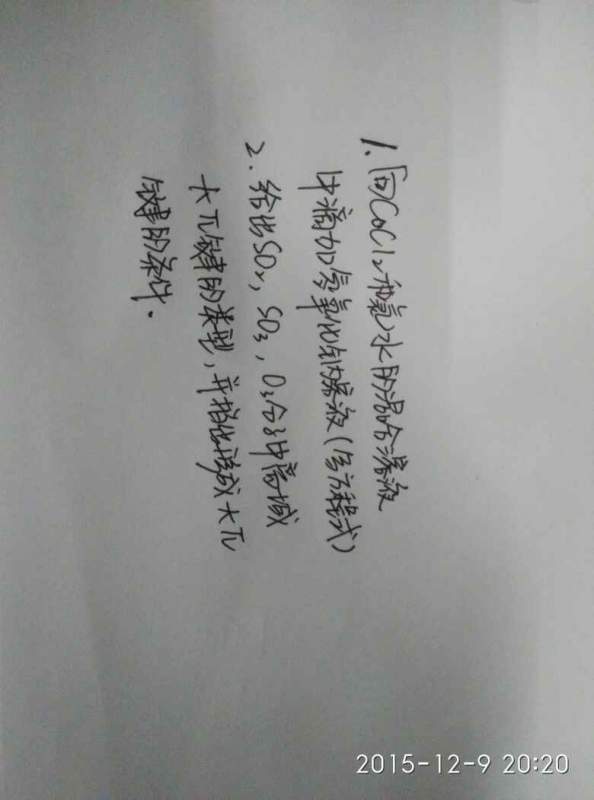 1. 向CoCl₂和氯水的混合溶液
中滴加氢氧化钠溶液(写方程式)
2. 给出SO₂, SO₃, O₃分子中离域
大π键的类型, 并指出形成大π
键的条件.
2015-12-9 20:20